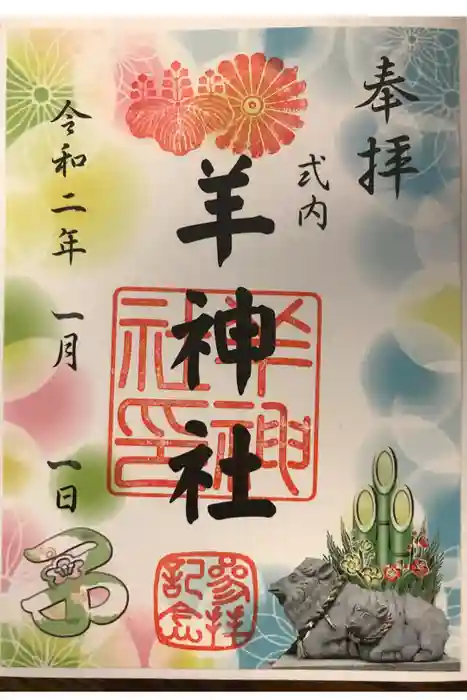 奉拝
式内
羊神社
羊神社印
令和二年 一月 一日
子
参拝記念